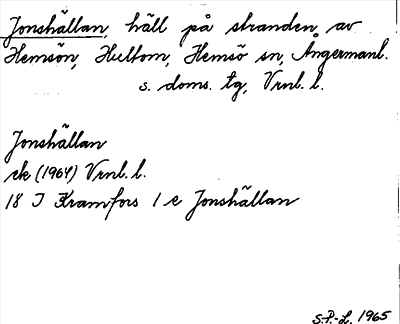 Jonshällan, häll på stranden av
Hemsön, Hultom, Hemsö sn, Ångermanl.
s. doms. tg, Vrnl. l.
Jonshällan
ek (1964) Vrnl. l.
18 I Kramfors 1 e Jonshällan
S.P.-L. 1965